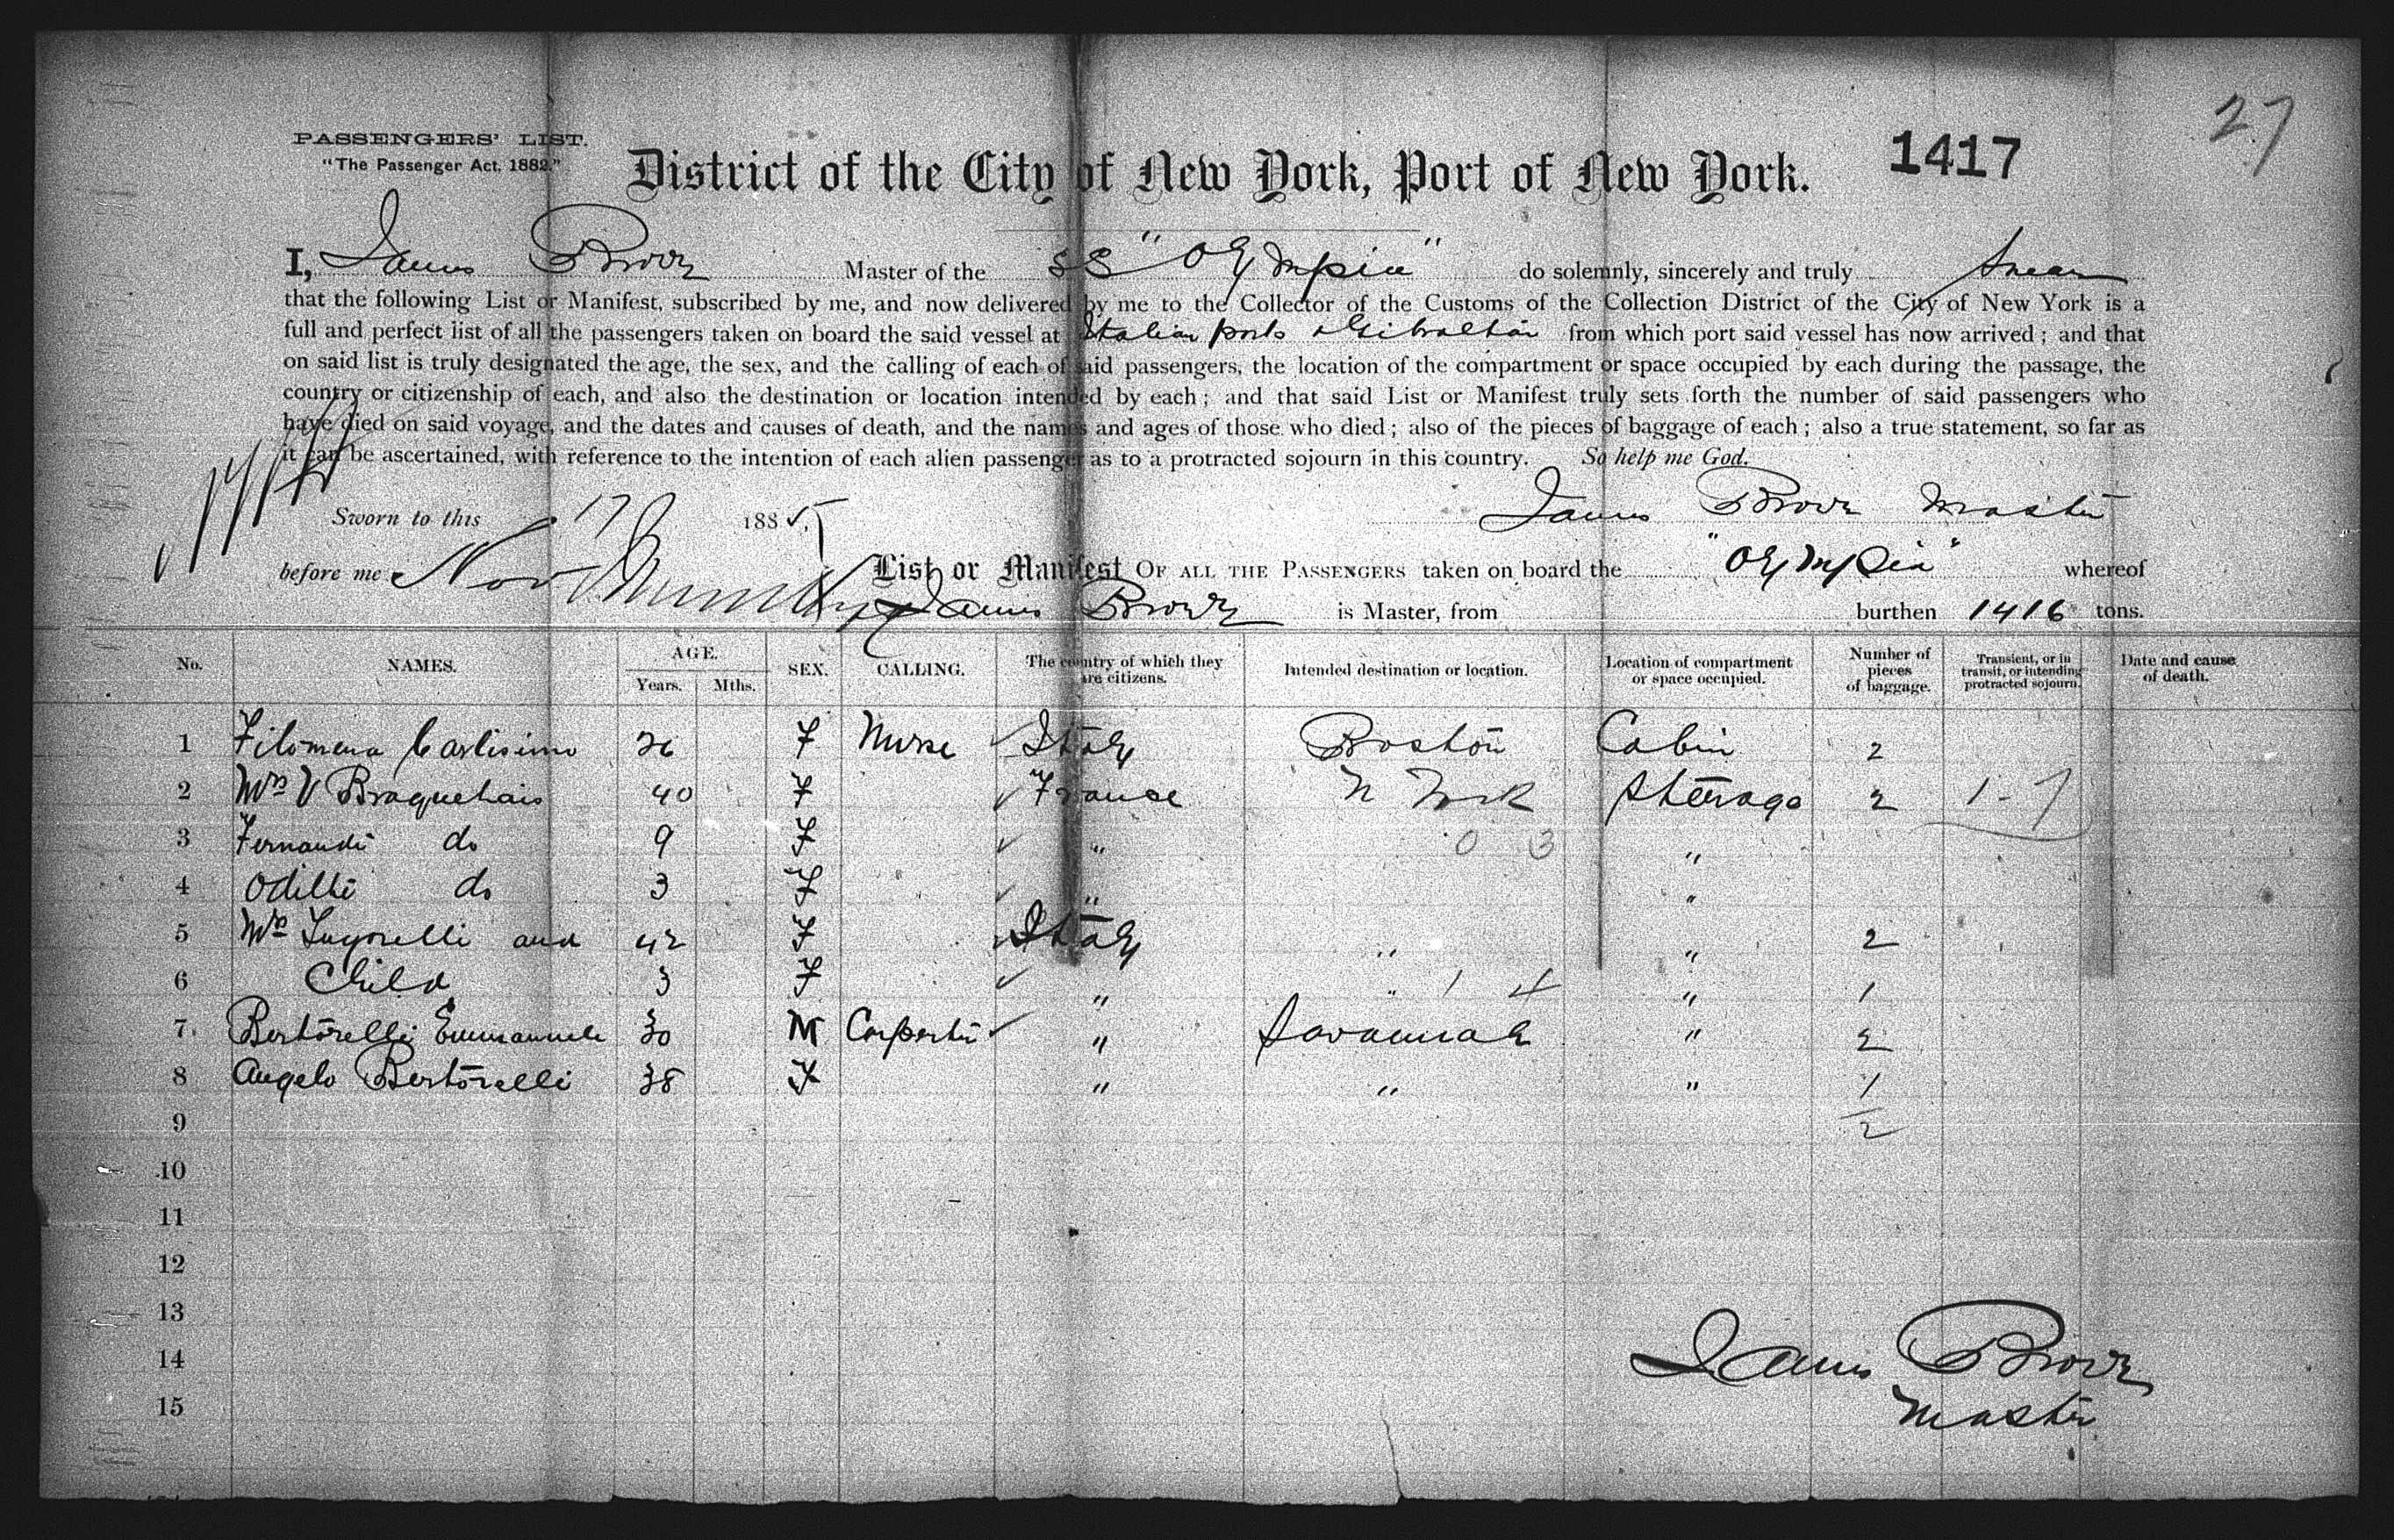 27
PASSENGERS' LIST.
"The Passenger Act, 1882."
District of the City of New York, Port of New York.
1417
I, James Brown Master of the SS "Olympia" do solemnly, sincerely and truly swear
that the following List or Manifest, subscribed by me, and now delivered by me to the Collector of the Customs of the Collection District of the City of New York is a
full and perfect list of all the passengers taken on board the said vessel at Italian ports & Gibraltar from which port said vessel has now arrived; and that
on said list is truly designated the age, the sex, and the calling of each of said passengers, the location of the compartment or space occupied by each during the passage, the
country or citizenship of each, and also the destination or location intended by each; and that said List or Manifest truly sets forth the number of said passengers who
have died on said voyage, and the dates and causes of death, and the names and ages of those who died; also of the pieces of baggage of each; also a true statement, so far as
it can be ascertained, with reference to the intention of each alien passenger as to a protracted sojourn in this country. So help me God.
Sworn to this 17 1885
James Brown Master
before me Nov
List or Manifest OF ALL THE PASSENGERS taken on board the "Olympia" whereof
James Brown is Master, from burthen 1416 tons.
No. NAMES. AGE. Years. Mths. SEX. CALLING. The country of which they are citizens. Intended destination or location. Location of compartment or space occupied. Number of pieces of baggage. Transient, or in transit, or intending protracted sojourn. Date and cause of death.
1 Filomena Carlisimo 26 F Nurse Italy Boston Cabin 2
2 Mrs V Braquehais 40 F France N York Steerage 2 1-7
3 Fernande do 9 F " 0 3 "
4 Odille do 3 F " "
5 Mrs and 42 F Italy " " 2
6 Child 3 F " " 1 4 " 1
7 Bertorelli Emmanuele 30 M Carpenter " Savannah " 2
8 Angelo Bertorelli 38 F " " " 1
9 2
10
11
12
13
14
15
James Brown
Master